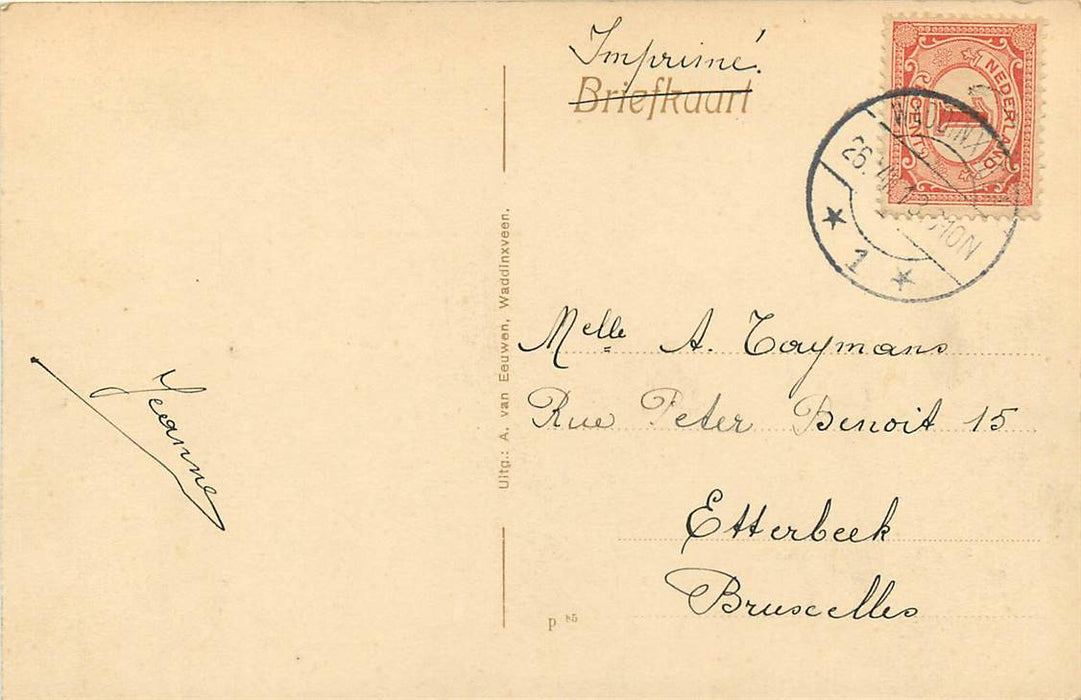 Imprimé.
Briefkaart
NEDERLAND
1
CENT
1
Jeanne
Uitg.: A. van Eeuwen, Waddinxveen.
Melle A. Taymans
Rue Peter Benoit 15
Etterbeek
Bruxelles
p 85